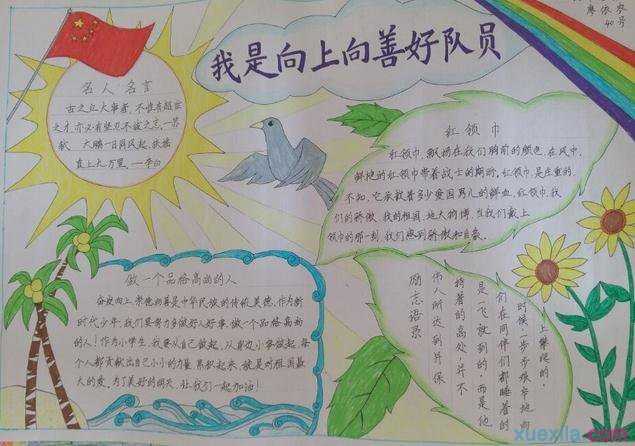 我是向上向善好队员
名人名言
古之立大事者,不惟有超世
之才,亦必有坚忍不拔之志。—苏
轼 大鹏一日同风起,扶摇
直上九万里。—李白
红领巾
红领巾,飘扬在我们胸前的颜色,在风中,
鲜艳的红领巾带着战士的期盼,红领巾是庄重的,
不知,它承载着多少爱国男儿的鲜血,红领巾,我
们的骄傲,我的祖国,地大物博,当我们戴上
领巾的那一刻,我们感到骄傲和自豪。
做一个品格高尚的人
奋发向上、崇德向善是中华民族的传统美德,作为新
时代少年,我们要努力多做好人好事,做一个品格高尚
的人!作为小学生,我要从自己做起,从身边小事做起,每
个人都贡献出自己小小的力量,累积起来,就是对祖国最
大的爱,为了美好的明天,让我们一起加油!
励志语录
伟人所达到并保
持着的高处,并不
是一飞就到的,而是他
们在同伴们都睡着的
时候,一步步艰辛地向
上攀爬的。
40号
xuexila.com